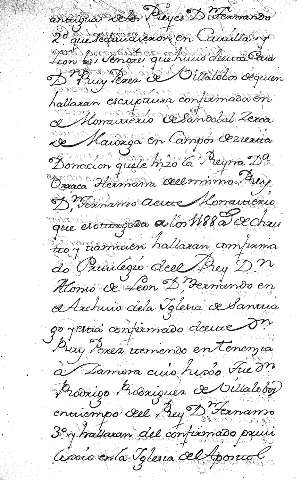 antigua de los Reyes Dn Fernando
2º que se quiuieron en Castilla y
Leon el Senor que huio de esta Casa
Dn Ruy Perez de Villalobos de quien
hallaran escriptura confirmada en
el Monasterio de Sandobal zerca
de Maiorga en Campos de zierta
Donacion que le hizo la Reyna Da
Vrraca Hermana de el mismo Rey
Dn Fernando a este Monasterio
que es otorgada a los 1188 As de Chris
to y tambien hallaran confirma
do Priuilegio de el Rey Dn
Alonso de Leon Dn Fernando en
el Archiuo de la Iglesia de Santia
go y está confirmado de este Dn
Ruy Perez teniendo en tenencia
a Zamora cuio hixo fue Dn
Rodrigo Rodriguez de Villalobos
en tiempo del Rey Dn Fernando
3º y hallaran del confirmado priui
lexio en la Iglesia del Apostol